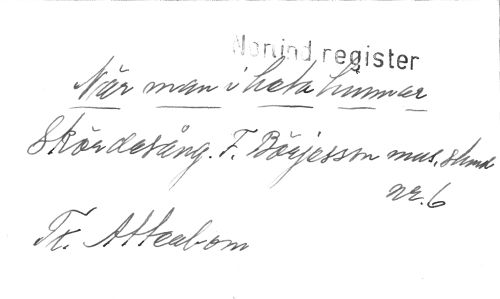 Nonind register
När man i heta hummar
Skördesång. F. Börjesson mus. stund
nr. 6
Tr. Atterbom